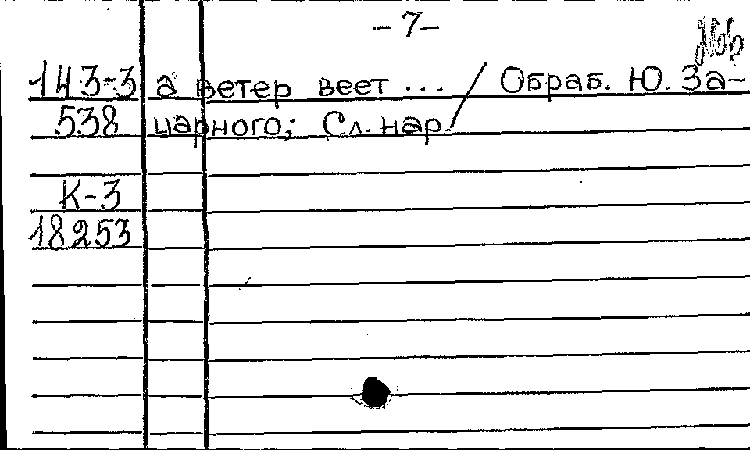 -7-
143-3 а ветер веет ... / Обраб. Ю. За-
538 царного; Сл. нар.
К-3
18253